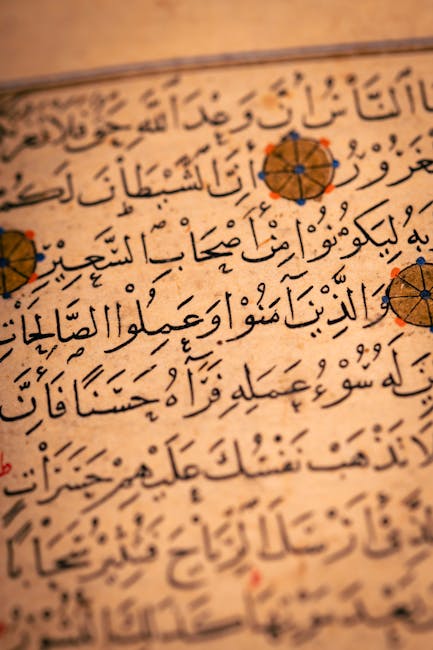 ا النَّاسُ إِنَّ وَعْدَ اللَّهِ حَقٌّ فَلَا تَغُرَّ
غَرُورُ إِنَّ الشَّيْطَانَ لَكُمْ
بَهُ لِيَكُونُوا مِنْ أَصْحَابِ السَّعِيرِ
وَالَّذِينَ آمَنُوا وَعَمِلُوا الصَّالِحَاتِ
يِّنَ لَهُ سُوءُ عَمَلِهِ فَرَآهُ حَسَنًا فَإِنَّ
لَا تَذْهَبْ نَفْسُكَ عَلَيْهِمْ حَسَرَاتٍ
لَّذِي أَرْسَلَ الرِّيَاحَ فَتُثِيرُ سَحَابًا
بَعْدَ مَوْتِهَا كَذَلِكَ النُّشُورُ